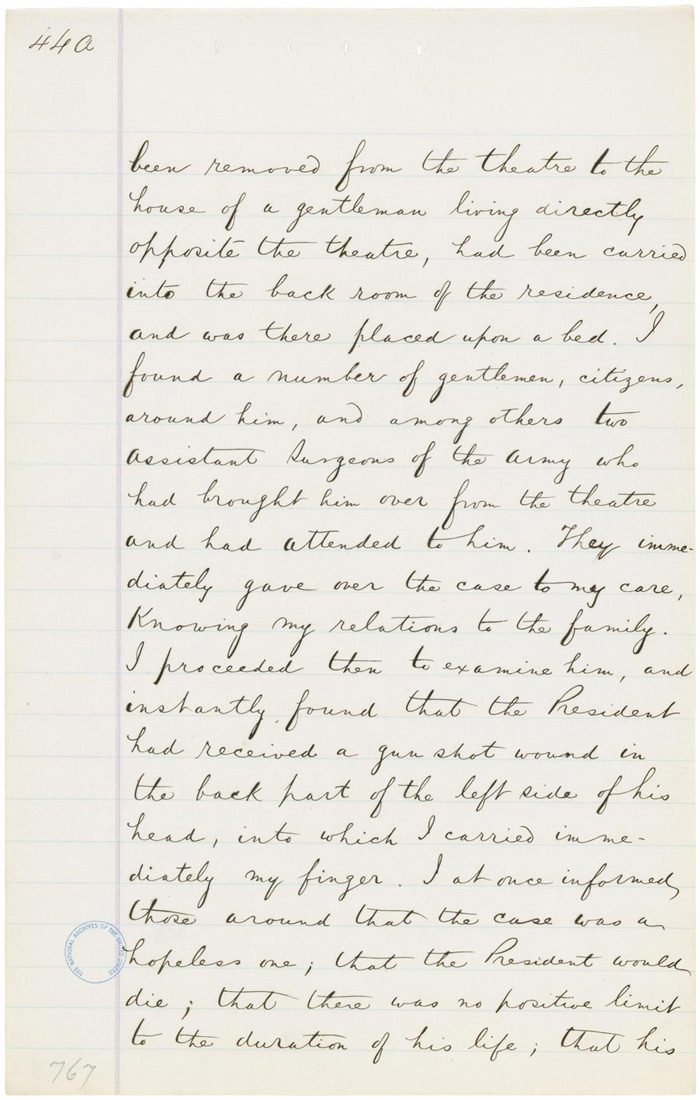 44a
been removed from the theatre to the
house of a gentleman living directly
opposite the theatre, had been carried
into the back room of the residence,
and was there placed upon a bed. I
found a number of gentlemen, citizens,
around him, and among others two
assistant Surgeons of the army who
had brought him over from the theatre
and had attended to him. They imme-
diately gave over the case to my care,
Knowing my relations to the family.
I proceeded then to examine him, and
instantly found that the President
had received a gun shot wound in
the back part of the left side of his
head, into which I carried imme-
diately my finger. I at once informed
those around that the case was a
hopeless one; that the President would
die; that there was no positive limit
to the duration of his life; that his
THE NATIONAL ARCHIVES OF THE UNITED STATES
767